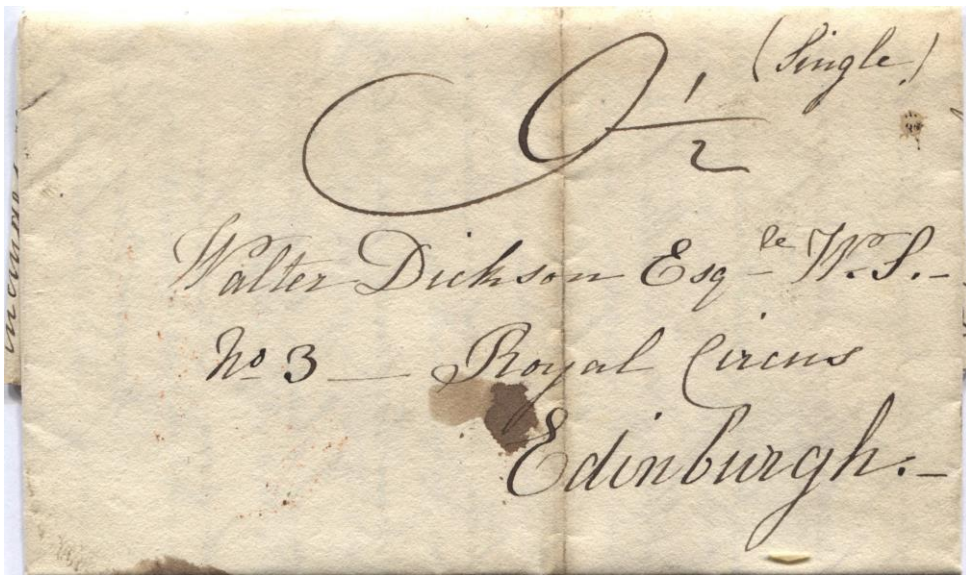 (Single)
1/2
Walter Dickson Esqre W.S.-
No 3 — Royal Circus
Edinburgh.-